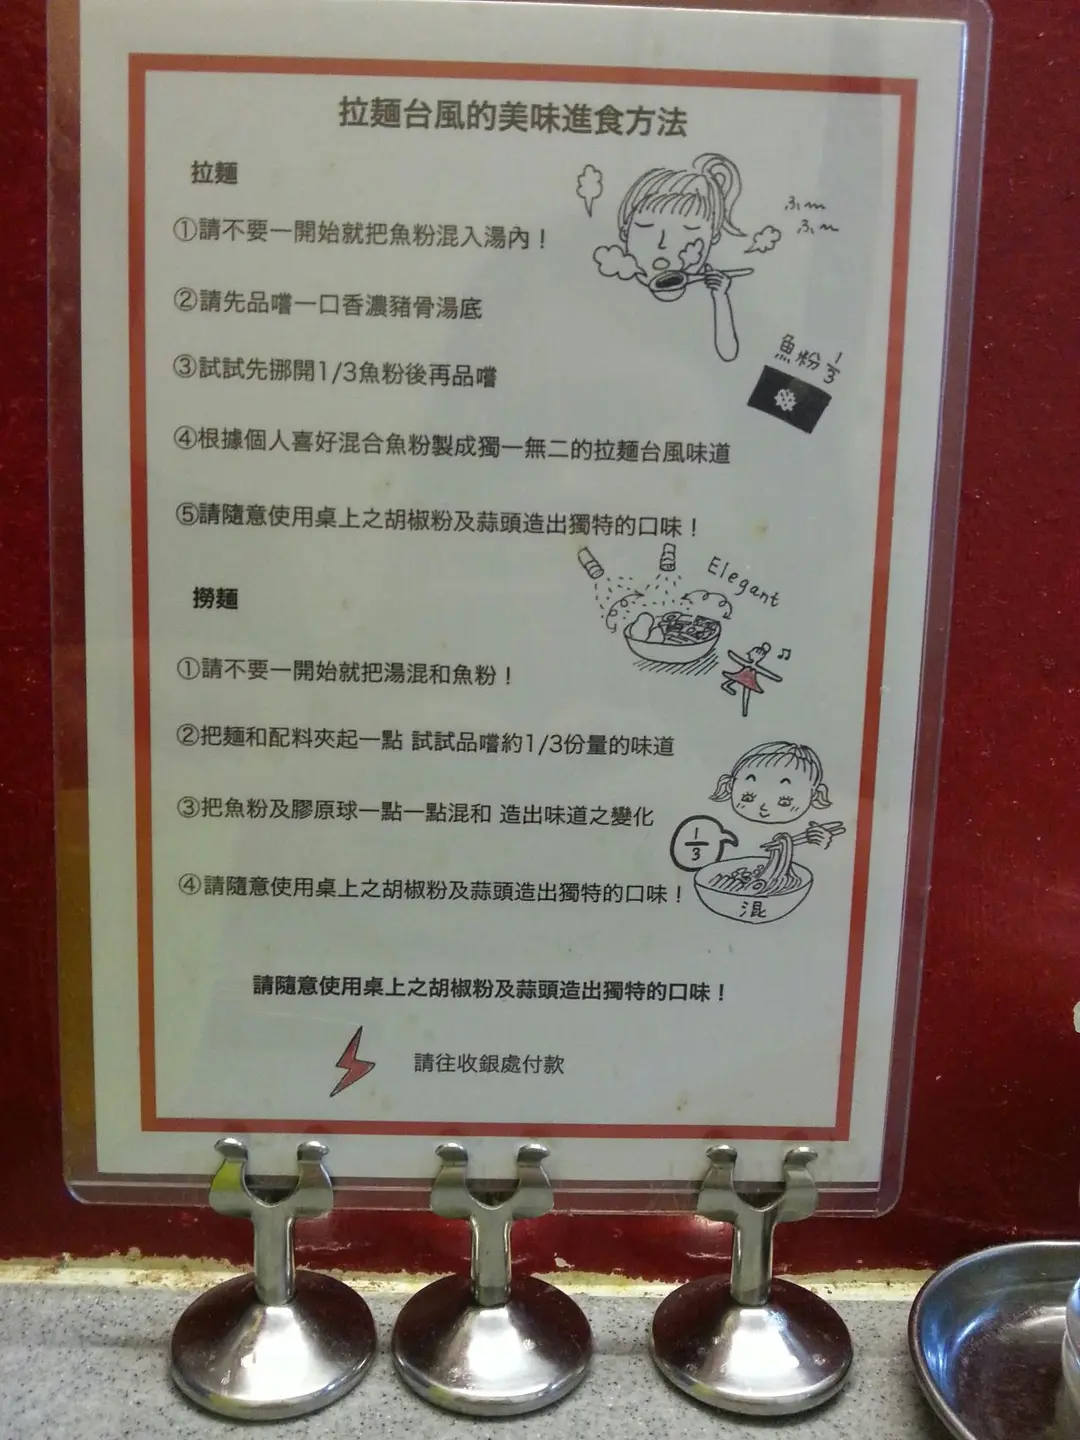 拉麵台風的美味進食方法
拉麵
①請不要一開始就把魚粉混入湯內！
ふー
ふー
②請先品嚐一口香濃豬骨湯底
魚粉 1/3
③試試先挪開1/3魚粉後再品嚐
④根據個人喜好混合魚粉製成獨一無二的拉麵台風味道
⑤請隨意使用桌上之胡椒粉及蒜頭造出獨特的口味！
Elegant
撈麵
①請不要一開始就把湯混和魚粉！
②把麵和配料夾起一點 試試品嚐約1/3份量的味道
③把魚粉及膠原球一點一點混和 造出味道之變化
1/3
④請隨意使用桌上之胡椒粉及蒜頭造出獨特的口味！
混
請隨意使用桌上之胡椒粉及蒜頭造出獨特的口味！
請往收銀處付款